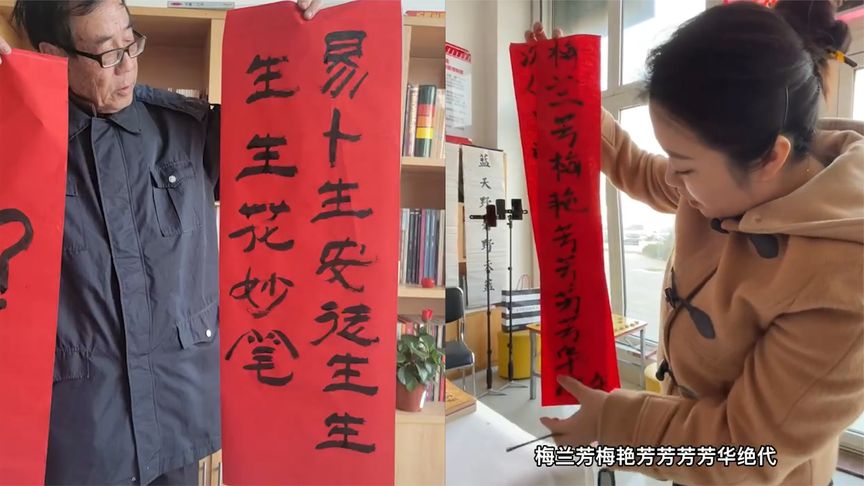 易卜生安徒生生
生生花妙笔
?
梅兰芳梅艳芳芳芳芳华
蓝天野
梅兰芳梅艳芳芳芳芳华绝代